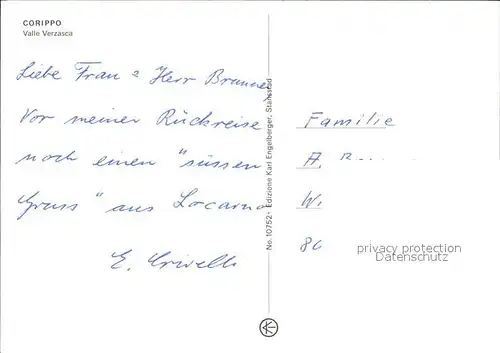 CORIPPO
Valle Verzasca
Liebe Frau & Herr Brunner,
Vor meiner Rückreise
noch einen "süssen
Gruss" aus Locarno
E. Crivelli
No. 10752 Edizione Karl Engelberger, Stansstad
Familie
A. B
W.
privacy protection
Datenschutz